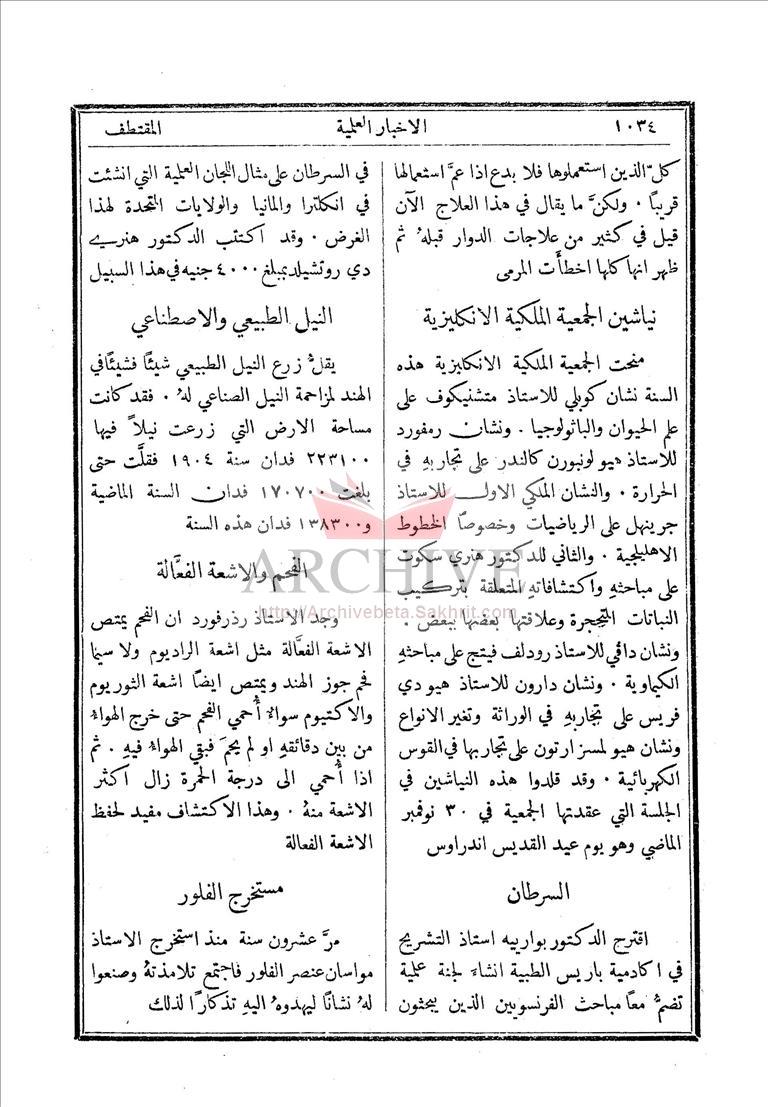 ١٠٣٤ الاخبار العلمية المقتطف
كلّ الذين استعملوها فلا بدع اذا عمَّ استعمالها
قريبًا ٠ ولكنَّ ما يقال في هذا العلاج الآن
قيل في كثير من علاجات الدوار قبلهُ ثم
ظهر انها كلها اخطأت المرمى
نياشين الجمعية الملكية الانكليزية
منحت الجمعية الملكية الانكليزية هذه
السنة نشان كوبلي للاستاذ متشنيكوف على
علم الحيوان والباثولوجيا ٠ ونشان رمفورد
للاستاذ هيو لونبورن كالندر على تجاربهِ في
الحرارة ٠ والنشان الملكي الاول للاستاذ
جرينهل على الرياضيات وخصوصًا الخطوط
الاهليلجية ٠ والثاني للدكتور هنري سكوت
على مباحثهِ واكتشافاتهِ المتعلقة بتركيب
النباتات المتحجرة وعلاقتها بعضها ببعض ٠
ونشان داڤي للاستاذ رودلف فيتج على مباحثهِ
الكيماوية ٠ ونشان دارون للاستاذ هيو دي
فريس على تجاربهِ في الوراثة وتغير الانواع
ونشان هيو لمسز ارتون على تجاربها في القوس
الكهربائية ٠ وقد قلدوا هذه النياشين في
الجلسة التي عقدتها الجمعية في ٣٠ نوفمبر
الماضي وهو يوم عيد القديس اندراوس
السرطان
اقترح الدكتور بوارييه استاذ التشريح
في اكادمية باريس الطبية انشاءَ لجنة علمية
تضمُّ معًا مباحث الفرنسويين الذين يبحثون
في السرطان على مثال اللجان العلمية التي انشئت
في انكلترا والمانيا والولايات المتحدة لهذا
الغرض ٠ وقد اكتتب الدكتور هنري
دي روتشيلد بمبلغ ٤٠٠٠ جنيه في هذا السبيل
النيل الطبيعي والاصطناعي
يقلُّ زرع النيل الطبيعي شيئًا فشيئًا في
الهند لمزاحمة النيل الصناعي لهُ ٠ فقد كانت
مساحة الارض التي زرعت نيلاً فيها
٢٢٣١٠٠ فدان سنة ١٩٠٤ فقلَّت حتى
بلغت ١٧٠٧٠٠ فدان السنة الماضية
و١٣٨٣٠٠ فدان هذه السنة
الفحم والاشعة الفعَّالة
وجد الاستاذ رذرفورد ان الفحم يمتص
الاشعة الفعَّالة مثل اشعة الراديوم ولا سيما
فحم جوز الهند ويمتص ايضًا اشعة الثوريوم
والاكتيوم سواءٌ أُحمي الفحم حتى خرج الهواءُ
من بين دقائقهِ او لم يحمَ فبقي الهواءُ فيهِ ٠ ثم
اذا أُحمي الى درجة الحمرة زال اكثر
الاشعة منهُ ٠ وهذا الاكتشاف مفيد لحفظ
الاشعة الفعالة
مستخرج الفلور
مرَّ عشرون سنة منذ استخرج الاستاذ
مواسان عنصر الفلور فاجتمع تلامذتهُ وصنعوا
لهُ نشانًا ليهدوهُ اليهِ تذكارًا لذلك
ARCHIVE
http://Archivebeta.Sakhrit.com